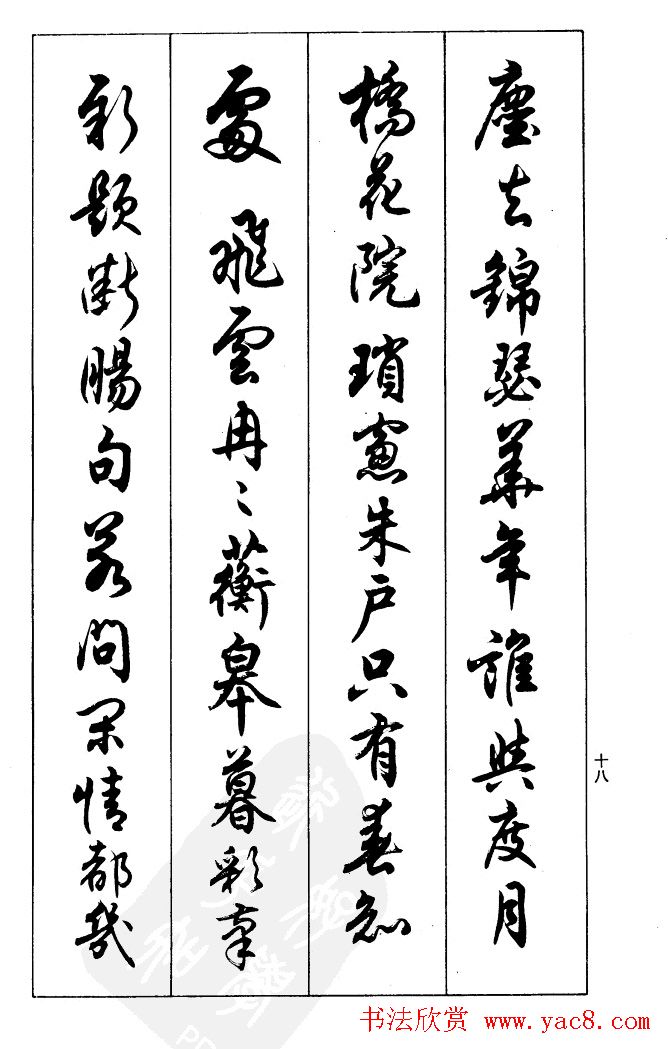 塵去錦瑟華年誰與度月
橋花院瑣窻朱户只有春知
處 飛雲冉〻蘅皋暮彩筆
新題斷腸句若問閑情都幾
十八
书法欣赏 www.yac8.com